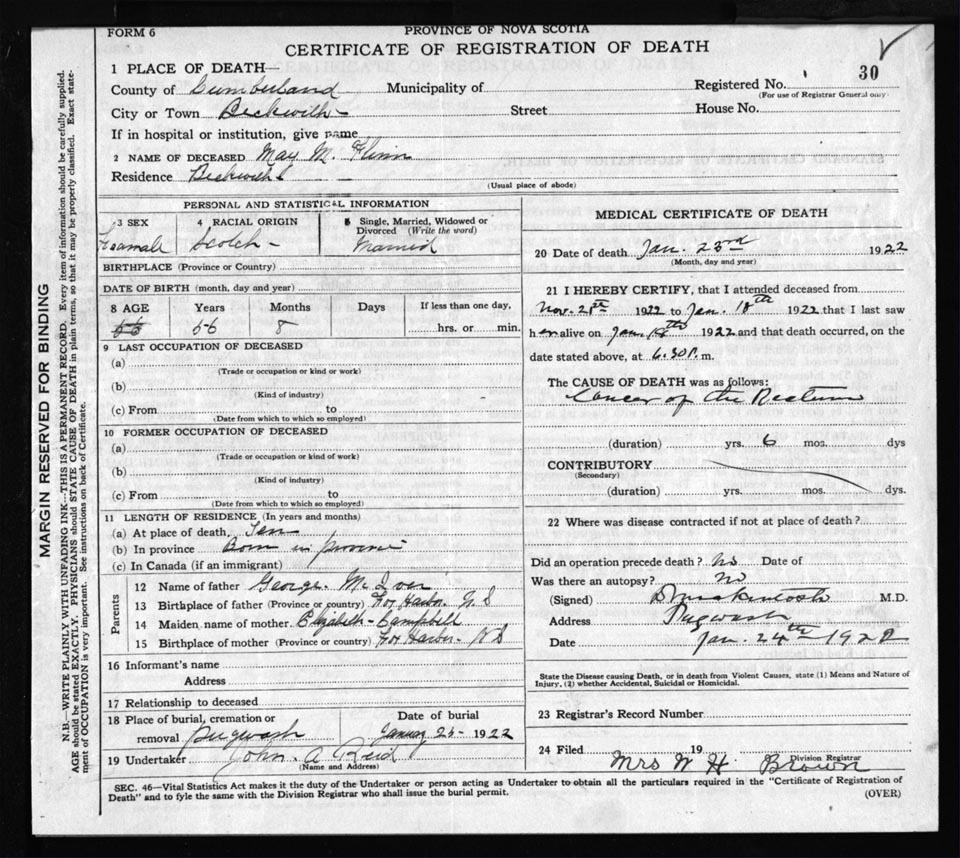 FORM 6
PROVINCE OF NOVA SCOTIA
CERTIFICATE OF REGISTRATION OF DEATH
30
1 PLACE OF DEATH—
County of Cumberland Municipality of Registered No.
(For use of Registrar General only)
City or Town Beckwith Street House No.
If in hospital or institution, give name
2 NAME OF DECEASED May M. Flinn
Residence Beckwith
(Usual place of abode)
PERSONAL AND STATISTICAL INFORMATION
3 SEX 4 RACIAL ORIGIN 5 Single, Married, Widowed or Divorced (Write the word)
Feamale Scotch - Married
BIRTHPLACE (Province or Country)
DATE OF BIRTH (month, day and year)
8 AGE Years Months Days If less than one day,
56 8 hrs. or min.
9 LAST OCCUPATION OF DECEASED
(a)
(Trade or occupation or kind or work)
(b)
(Kind of industry)
(c) From to
(Date from which to which so employed)
10 FORMER OCCUPATION OF DECEASED
(a)
(Trade or occupation or kind or work)
(b)
(Kind of industry)
(c) From to
(Date from which to which so employed)
11 LENGTH OF RESIDENCE (In years and months)
(a) At place of death, Ten
(b) In province Born in province
(c) In Canada (if an immigrant)
Parents
12 Name of father George McIver
13 Birthplace of father (Province or country) Fox Harbor N S
14 Maiden name of mother. Elizabeth - Campbell
15 Birthplace of mother (Province or country) Fox Harbor- N S
16 Informant's name
Address
17 Relationship to deceased
18 Place of burial, cremation or removal Pugwash
Date of burial
January 25- 1922
19 Undertaker John. A Reid
(Name and Address)
MEDICAL CERTIFICATE OF DEATH
20 Date of death Jan. 23rd 1922
(Month, day and year)
21 I HEREBY CERTIFY, that I attended deceased from
Nov. 28th 1922 to Jan. 18th 1922, that I last saw
her alive on Jan. 18th 1922 and that death occurred, on the
date stated above, at 6.30 P. m.
The CAUSE OF DEATH was as follows:
Cancer of the Rectum
(duration) yrs. 6 mos. dys
CONTRIBUTORY
(Secondary)
(duration) yrs. mos. dys.
22 Where was disease contracted if not at place of death?
Did an operation precede death? No Date of
Was there an autopsy? No
(Signed) D Mackintosh M.D.
Address Pugwash
Date Jan. 24th 1922
State the Disease causing Death, or in death from Violent Causes, state (1) Means and Nature of
Injury, (2) whether Accidental, Suicidal or Homicidal.
23 Registrar's Record Number
24 Filed 19
Mrs W H. Brown
Division Registrar
SEC. 46—Vital Statistics Act makes it the duty of the Undertaker or person acting as Undertaker to obtain all the particulars required in the "Certificate of Registration of
Death" and to fyle the same with the Division Registrar who shall issue the burial permit.
(OVER)
MARGIN RESERVED FOR BINDING
N.B.—WRITE PLAINLY WITH UNFADING INK—THIS IS A PERMANENT RECORD. Every item of information should be carefully supplied.
AGE should be stated EXACTLY. PHYSICIANS should STATE CAUSE OF DEATH in plain terms, so that it may be properly classified. Exact state-
ment of OCCUPATION is very important. See instructions on back of Certificate.